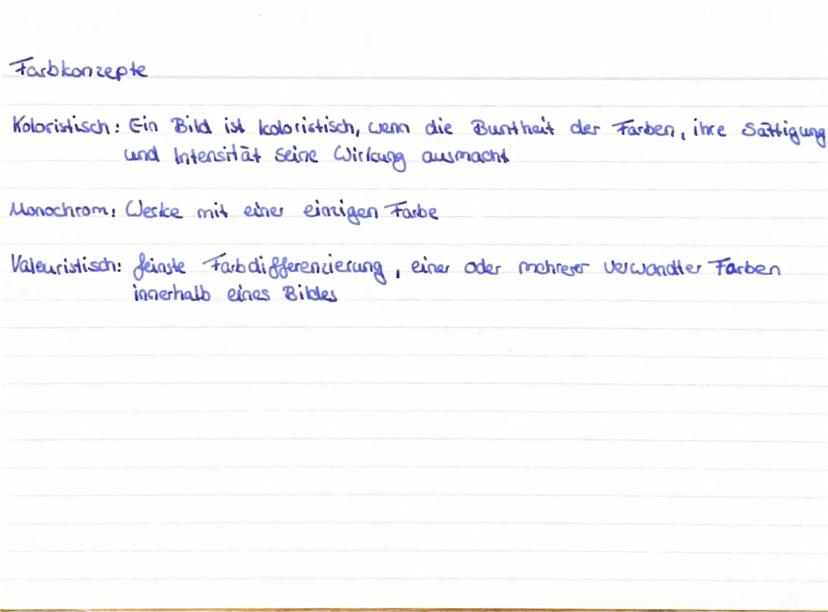 Farbkonzepte
Koloristisch: Ein Bild ist koloristisch, wenn die Buntheit der Farben, ihre Sättigung
und Intensität seine Wirkung ausmacht
Monochrom: Werke mit einer einzigen Farbe
Valeuristisch: feinste Farbdifferenzierung, einer oder mehrerer verwandter Farben
innerhalb eines Bildes